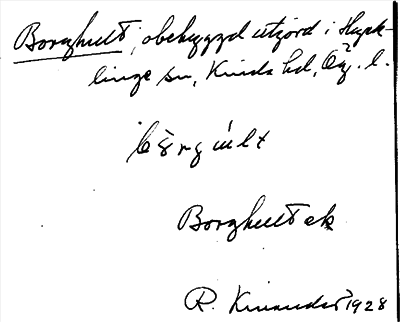 Borghult, obebyggd utjord i Hyck-
linge sn, Kinda hd, Ög. l.
bårgúlt
Borghult ek
R. Kinander 1928